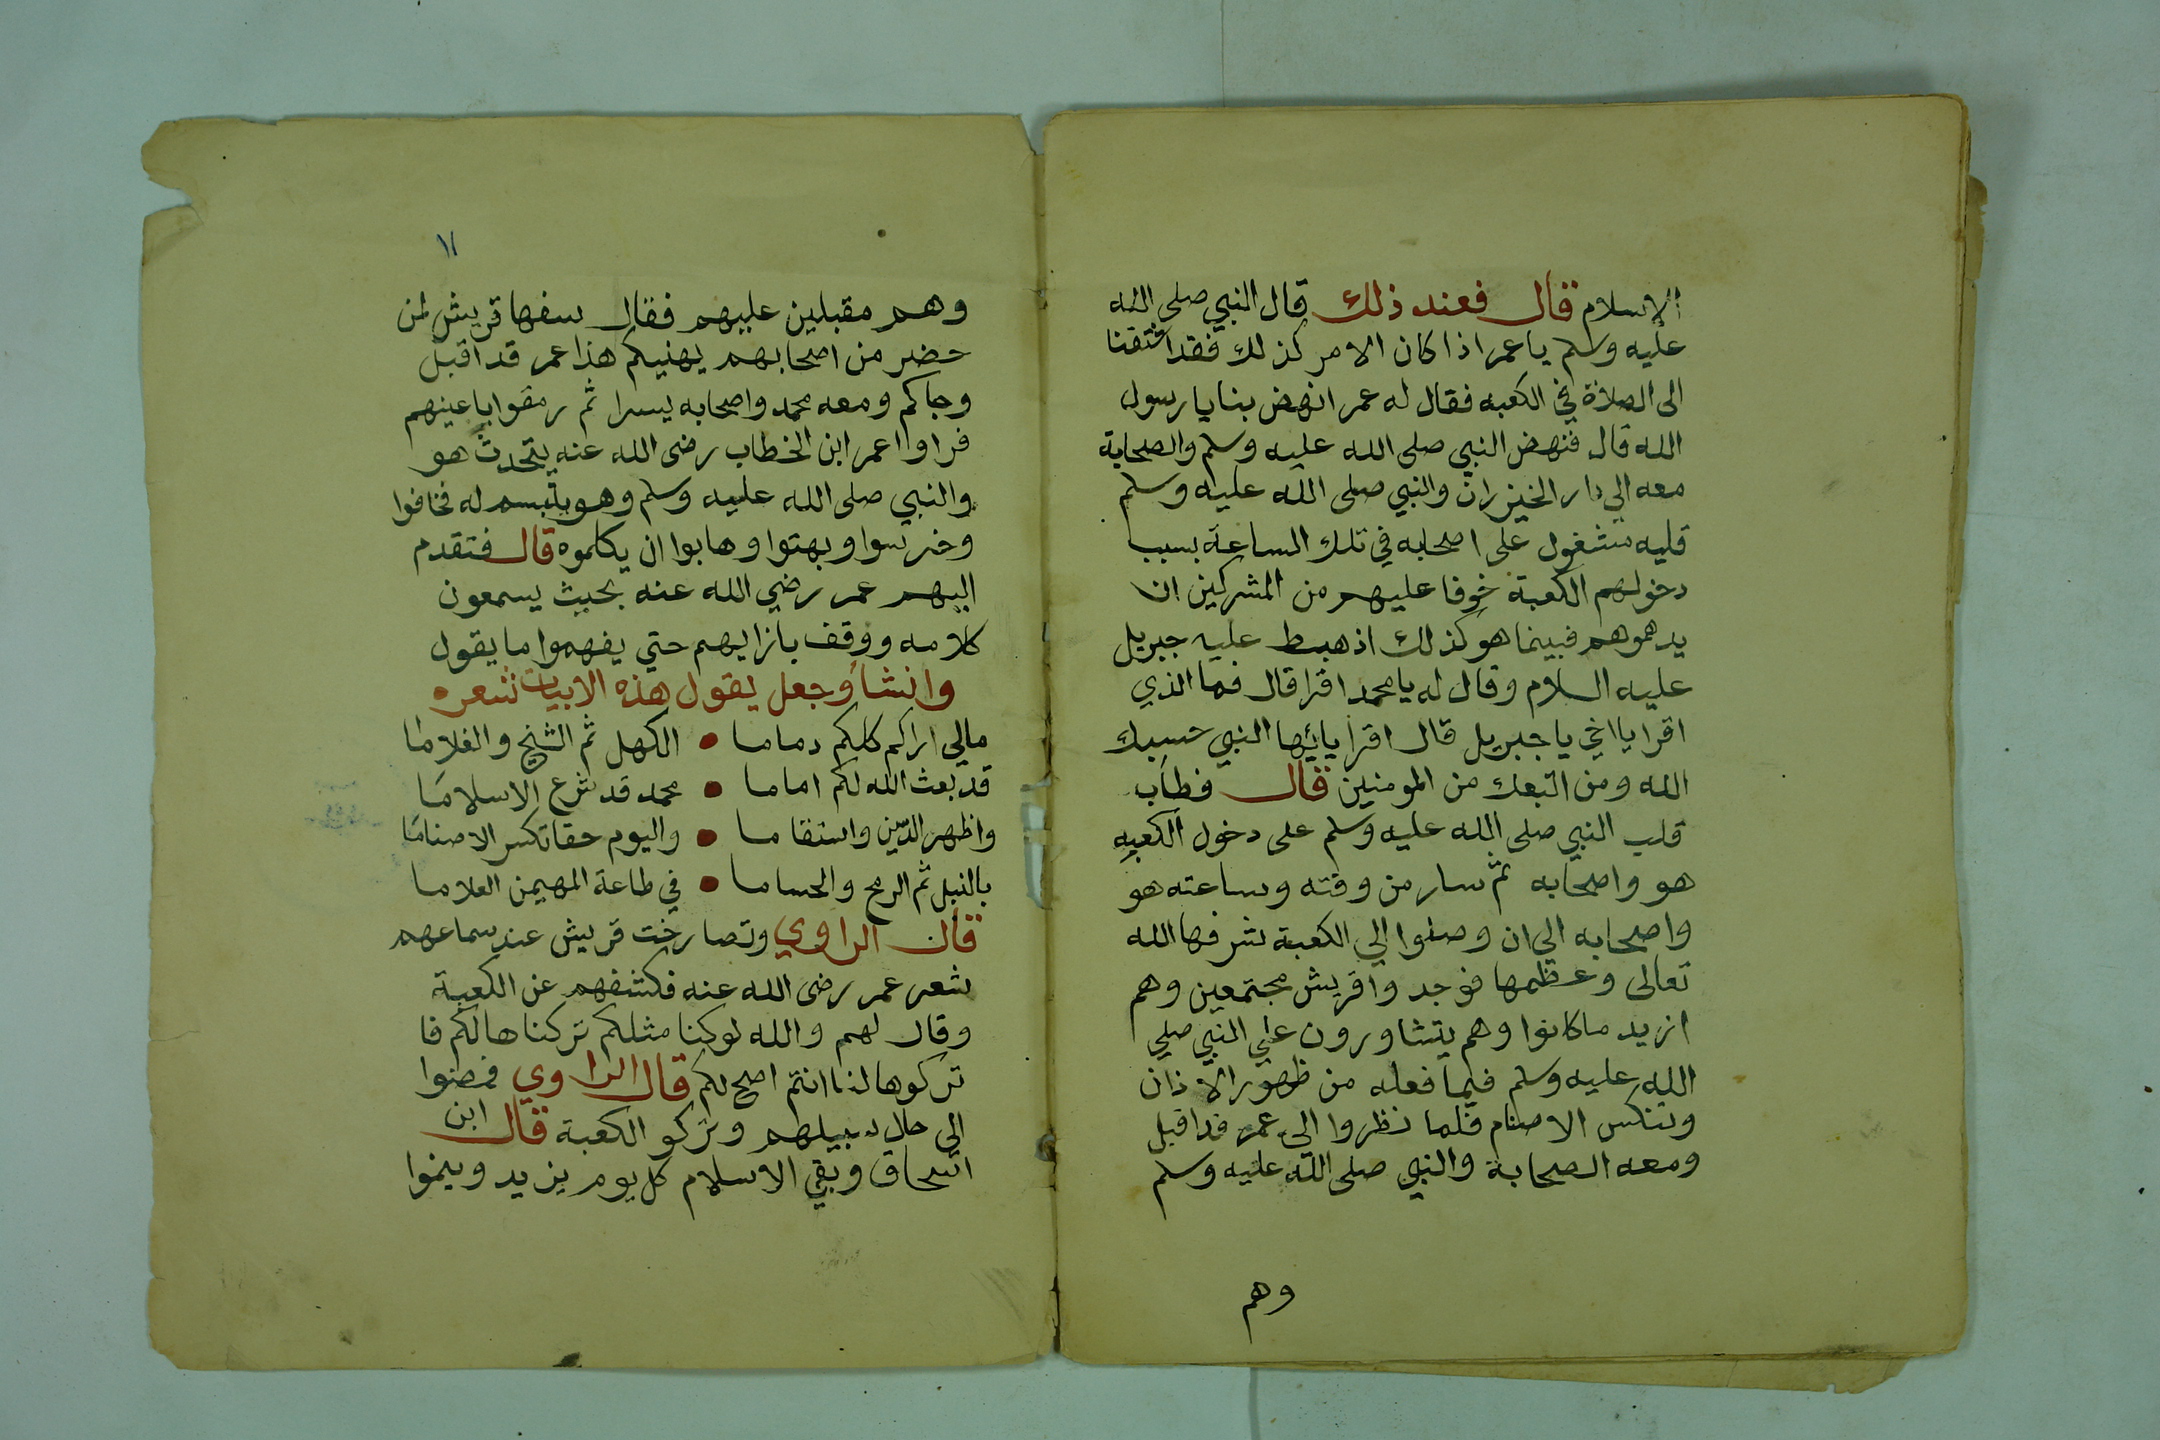 الاسلام قال فعند ذلك قال النبي صلى الله
عليه وسلم ياعمر اذا كان الامر كذلك فقد اشتقنا
الى الصلاة في الكعبه فقال له عمر انهض بنا يا رسول
الله قال فنهض النبي صلى الله عليه وسلم والصحابة
معه الي دار الخيزران والنبي صلى الله عليه وسلم
قلبه مشغول على اصحابه في تلك الساعة بسبب
دخولهم الكعبة خوفا عليهم من المشركين ان
يدهموهم فبينما هو كذلك اذ هبط عليه جبريل
عليه السلام وقال له يا محمد اقرا قال فما الذي
اقرا يا اخي يا جبريل قال اقرا يائيها النبي حسبك
الله ومن اتبعك من المومنين قال فطاب
قلب النبي صلى الله عليه وسلم على دخول الكعبه
هو واصحابه ثم سار من وقته وساعته هو
واصحابه الي ان وصلوا الي الكعبة شرفها الله
تعالى وعظمها فوجدوا قريش مجتمعين وهم
ازيد ما كانوا وهم يتشاورون علي النبي صلي
الله عليه وسلم فيما فعله من ظهور الاذان
وتنكس الاصنام فلما نظروا الى عمر قد اقبل
ومعه الصحابة والنبي صلى الله عليه وسلم
وهم
١١
وهم مقبلين عليهم فقال سفها قريش لمن
حضر من اصحابهم يهنيكم هذا عمر قد اقبل
وجاكم ومعه محمد واصحابه يسرا ثم رمقوا باعينهم
فراوا عمر ابن الخطاب رضى الله عنه يتحدث هو
والنبي صلى الله عليه وسلم وهو يتبسم له فخافوا
وخرسوا وبهتوا وهابوا ان يكلموه قال فتقدم
اليهم عمر رضي الله عنه بحيث يسمعون
كلامه ووقف بازايهم حتي يفهموا ما يقول
وانشا وجعل يقول هذه الابيات شعر
مالي اراكم كلكم دماما • الكهل ثم الشيخ والغلاما
قد بعث الله لكم اماما • محمد قد شرع الاسلاما
واظهر الدين واستقاما • واليوم حقا تكسر الاصناما
بالنبل ثم الرمح والحساما • في طاعة المهيمن العلاما
قال الراوي وتصارخت قريش عند سماعهم
شعر عمر رضى الله عنه فكشفهم عن الكعبة
وقال لهم والله لو كنا مثلكم تركناها لكم فا
تركوها لنا انتم اصح لكم قال الراوي فمضوا
الى حال سبيلهم وتركو الكعبة قال ابن
اسحاق وبقي الاسلام كل يوم يزيد وينموا